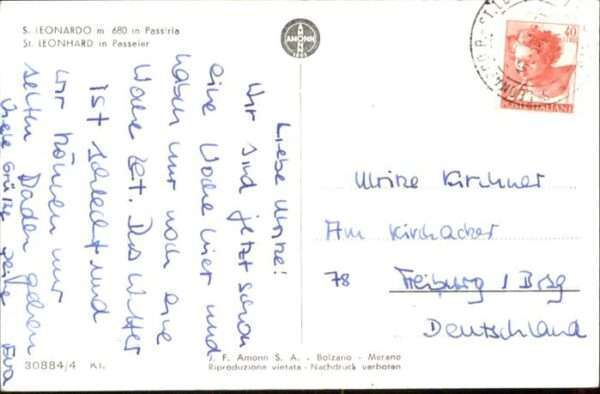 S. LEONARDO m 680 in Passiria
St. LEONHARD in Passeier
AMONN
40
POSTE ITALIANE
Liebe Ulrike!
Wir sind jetzt schon
eine Woche hier und
haben nur noch eine
Woche Zeit. Das Wetter
ist schlecht und
wir können nur
selten Baden gehen
Viele Grüße Deine Eva
Ulrike Kirchner
Am Kirchacker
78 Freiburg / Brsg
Deutschland
30884/4 Kl.
J. F. Amonn S. A. - Bolzano - Merano
Riproduzione vietata - Nachdruck verboten